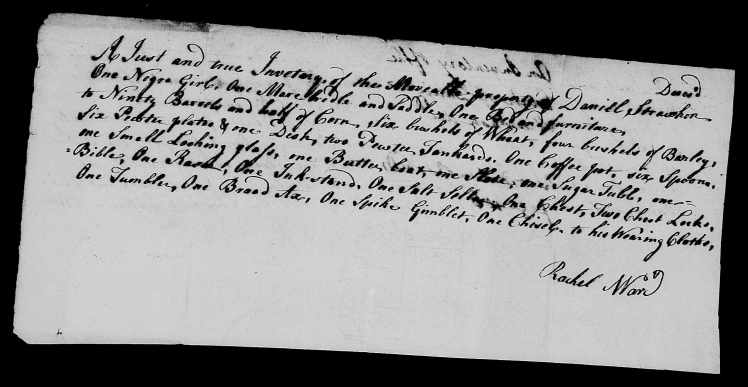 A Just and true Invetory of the Moveable property of Daniell Strawhon Deces'd
One Negro Girl, One Mare bridle and Saddle, One Bed and furniture,
to Ninety Barrels and half of Corn, Six bushels of Wheat, four bushels of Barley,
Six Pewter plates & one Desk, two Pewter Tankards. One Coffee pot, six Spoons.
one Small Looking glass, one Butter boat, one Slate, one Sugar Tubb, one
Bible, One Razor, One Ink-stand. One Salt Seller, One Chest, Two Chest Locks,
One Tumbler, One Broad Ax, One Spike Gimblet, One Chisel, to his Wearing Cloths,
Rachel Ward
An Inventory of the